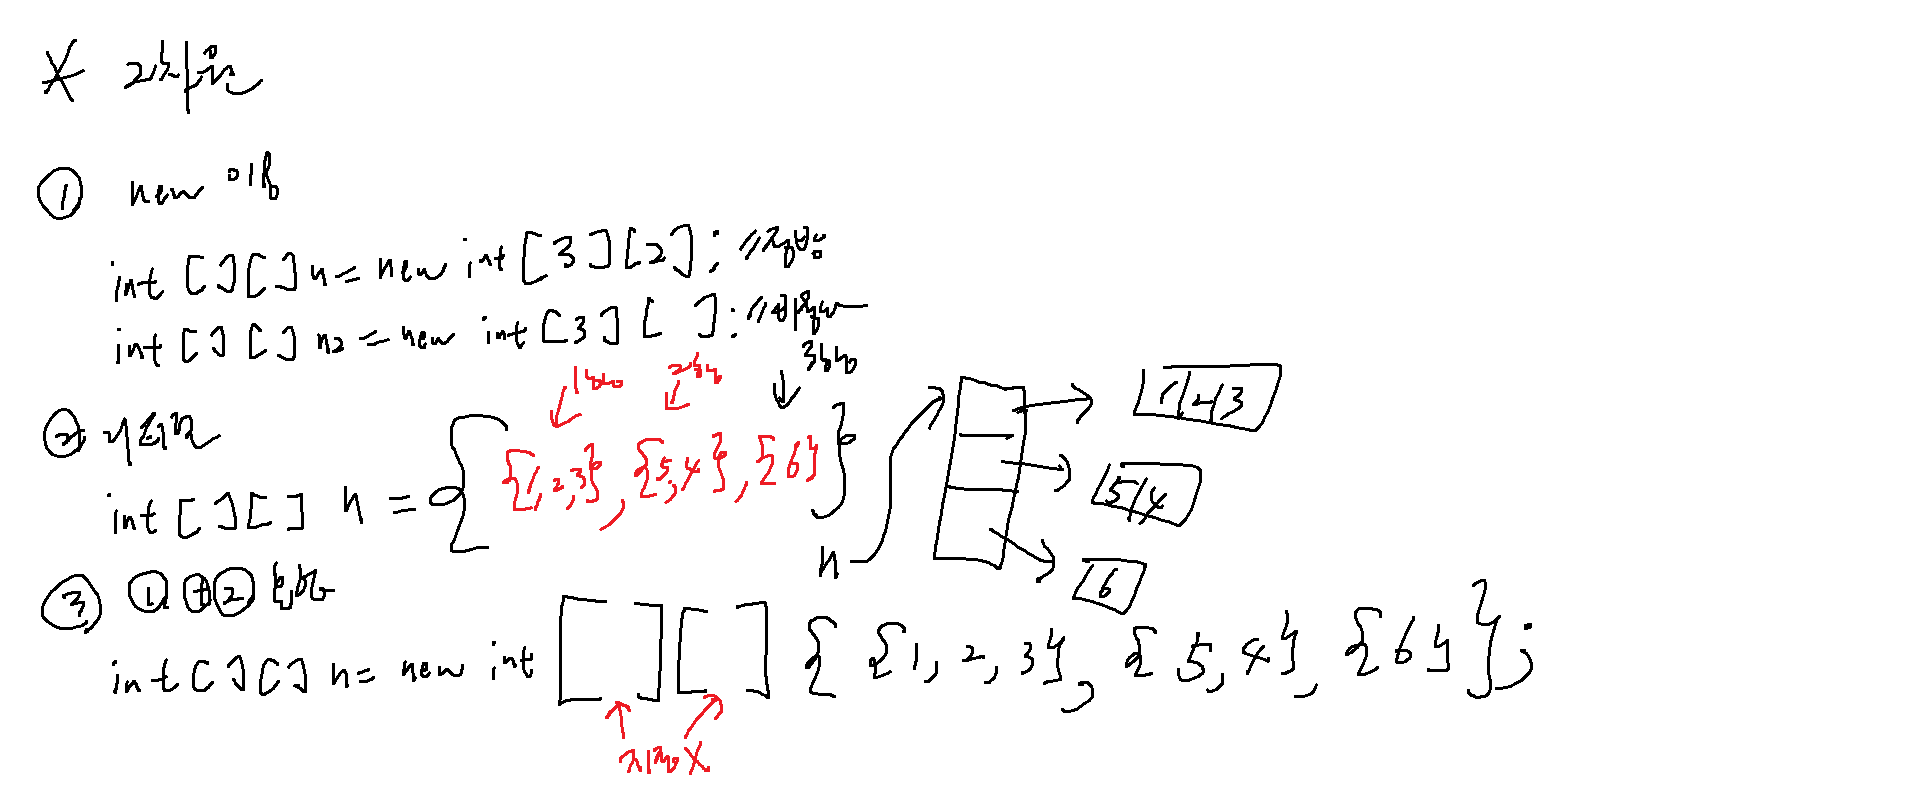 * 2차원
① new 이용
int [ ][ ] n = new int [3][2]; // 정방
int [ ][ ] n2 = new int [3][ ]; // 비정방
1행 2행 3행
② 리터럴
int [ ][ ] n = { {1,2,3}, {5,4}, {6} }
n
1 2 3
5 4
6
③ ① + ② 혼합
int [ ][ ] n = new int [ ][ ] { {1, 2, 3}, { 5, 4}, {6} };
지정 X